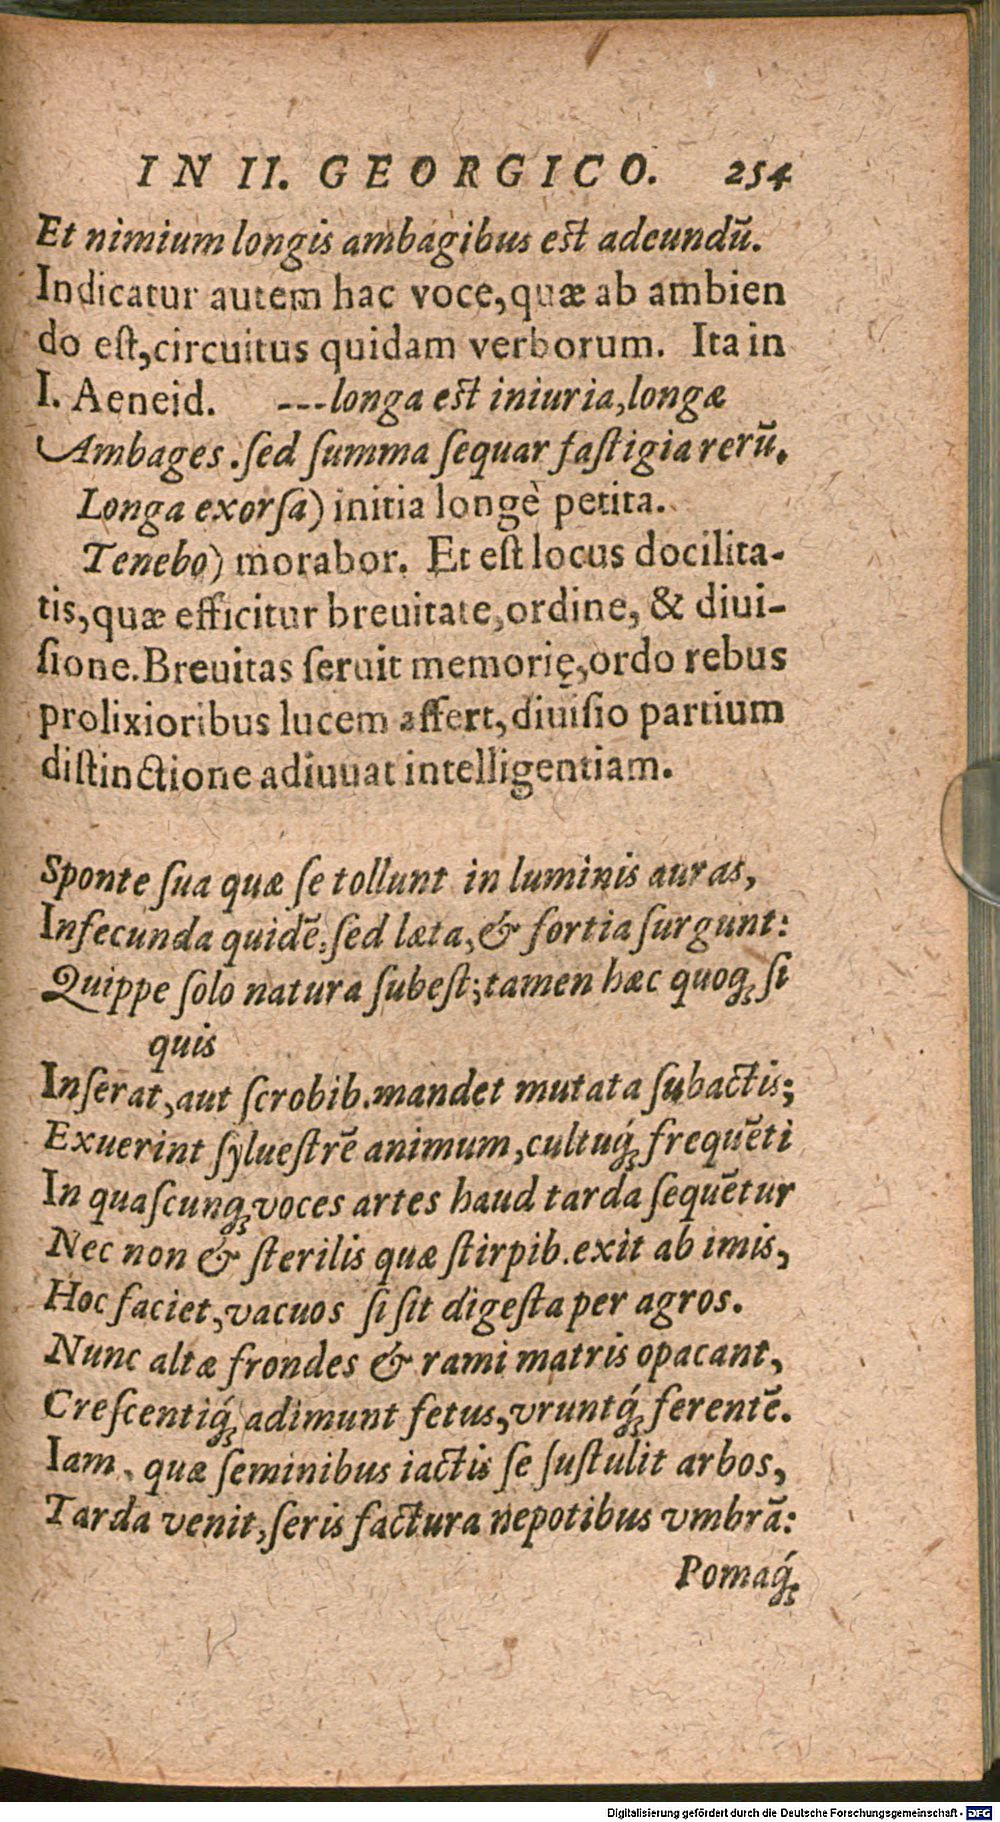 IN II. GEORGICO. 254
Et nimium longis ambagibus est adeundū.
Indicatur autem hac voce, quæ ab ambien
do eſt, circuitus quidam verborum. Ita in
I. Aeneid. ---longa est iniuria, longæ
Ambages. ſed ſumma ſequar faſtigia rerū.
Longa exorſa) initia longè petita.
Tenebo) morabor. Et eſt locus docilita-
tis, quæ efficitur breuitate, ordine, & diui-
ſione. Breuitas ſeruit memorię, ordo rebus
prolixioribus lucem affert, diuiſio partium
diſtinctione adiuuat intelligentiam.
Sponte ſua quæ ſe tollunt in luminis auras,
Infecunda quidē: ſed læta, & fortia ſurgunt:
Quippe ſolo natura ſubeſt; tamen hæc quoq; ſi
quis
Inſerat, aut ſcrobib. mandet mutata ſubactis;
Exuerint ſylueſtrē animum, cultuq́; frequēti
In quaſcunq; voces artes haud tarda ſequētur
Nec non & ſterilis quæ ſtirpib. exit ab imis,
Hoc faciet, vacuos ſi ſit digeſta per agros.
Nunc altæ frondes & rami matris opacant,
Creſcentiq́; adimunt fetus, vruntq́; ferentē.
Iam, quæ ſeminibus iactis ſe ſuſtulit arbos,
Tarda venit, ſeris factura nepotibus vmbrā:
Pomaq́;
Digitalisierung gefördert durch die Deutsche Forschungsgemeinschaft - DFG